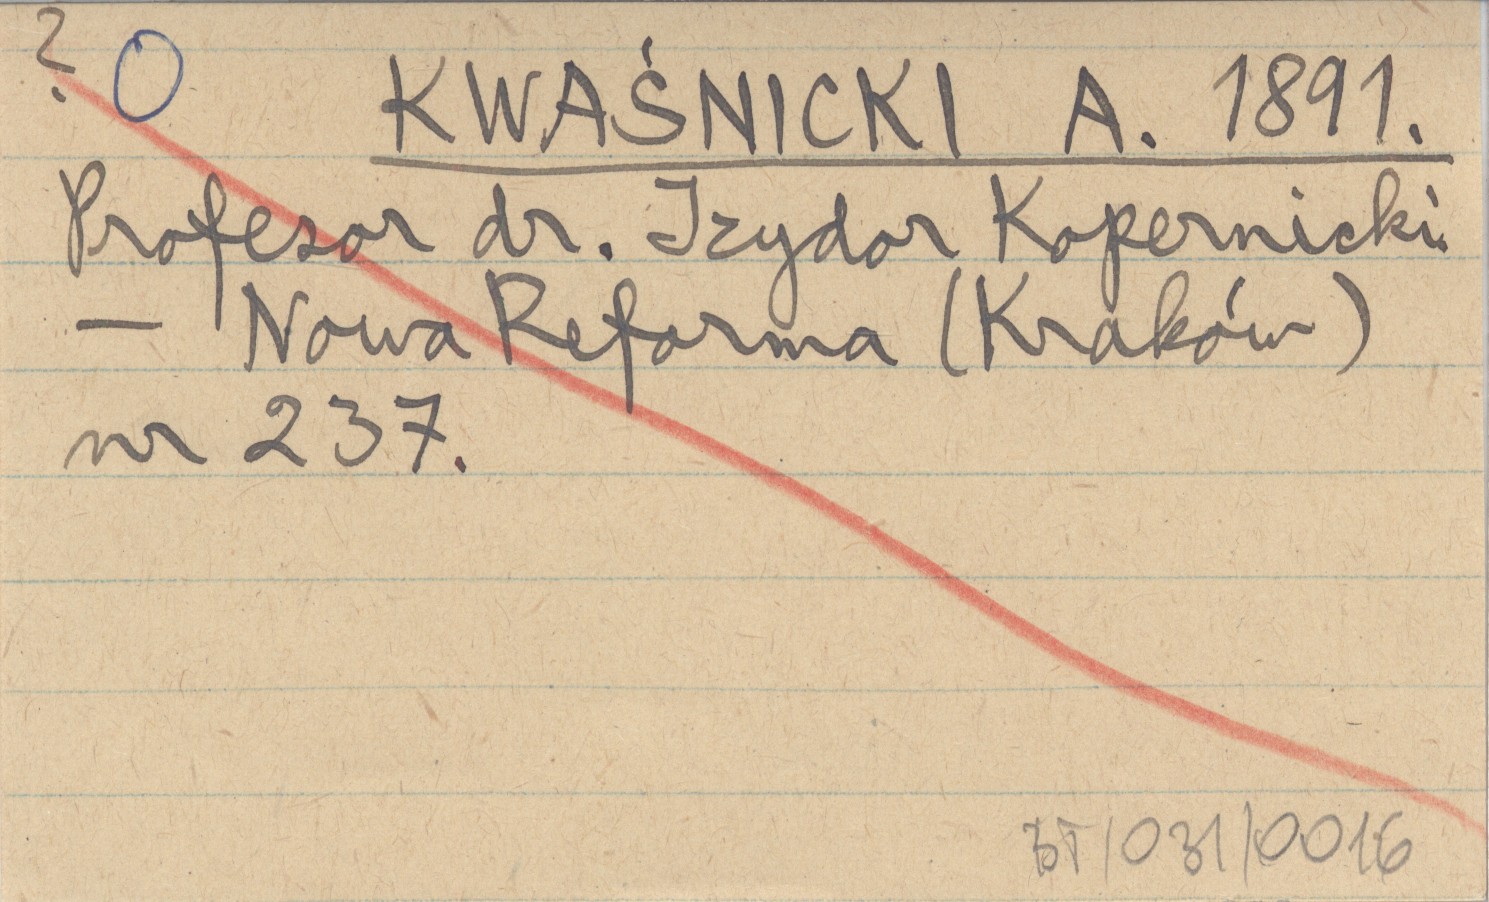 ? O
KWAŚNICKI A. 1891.
Profesor dr. Izydor Kopernicki.
— Nowa Reforma (Kraków)
nr 237.
BT/031/0016